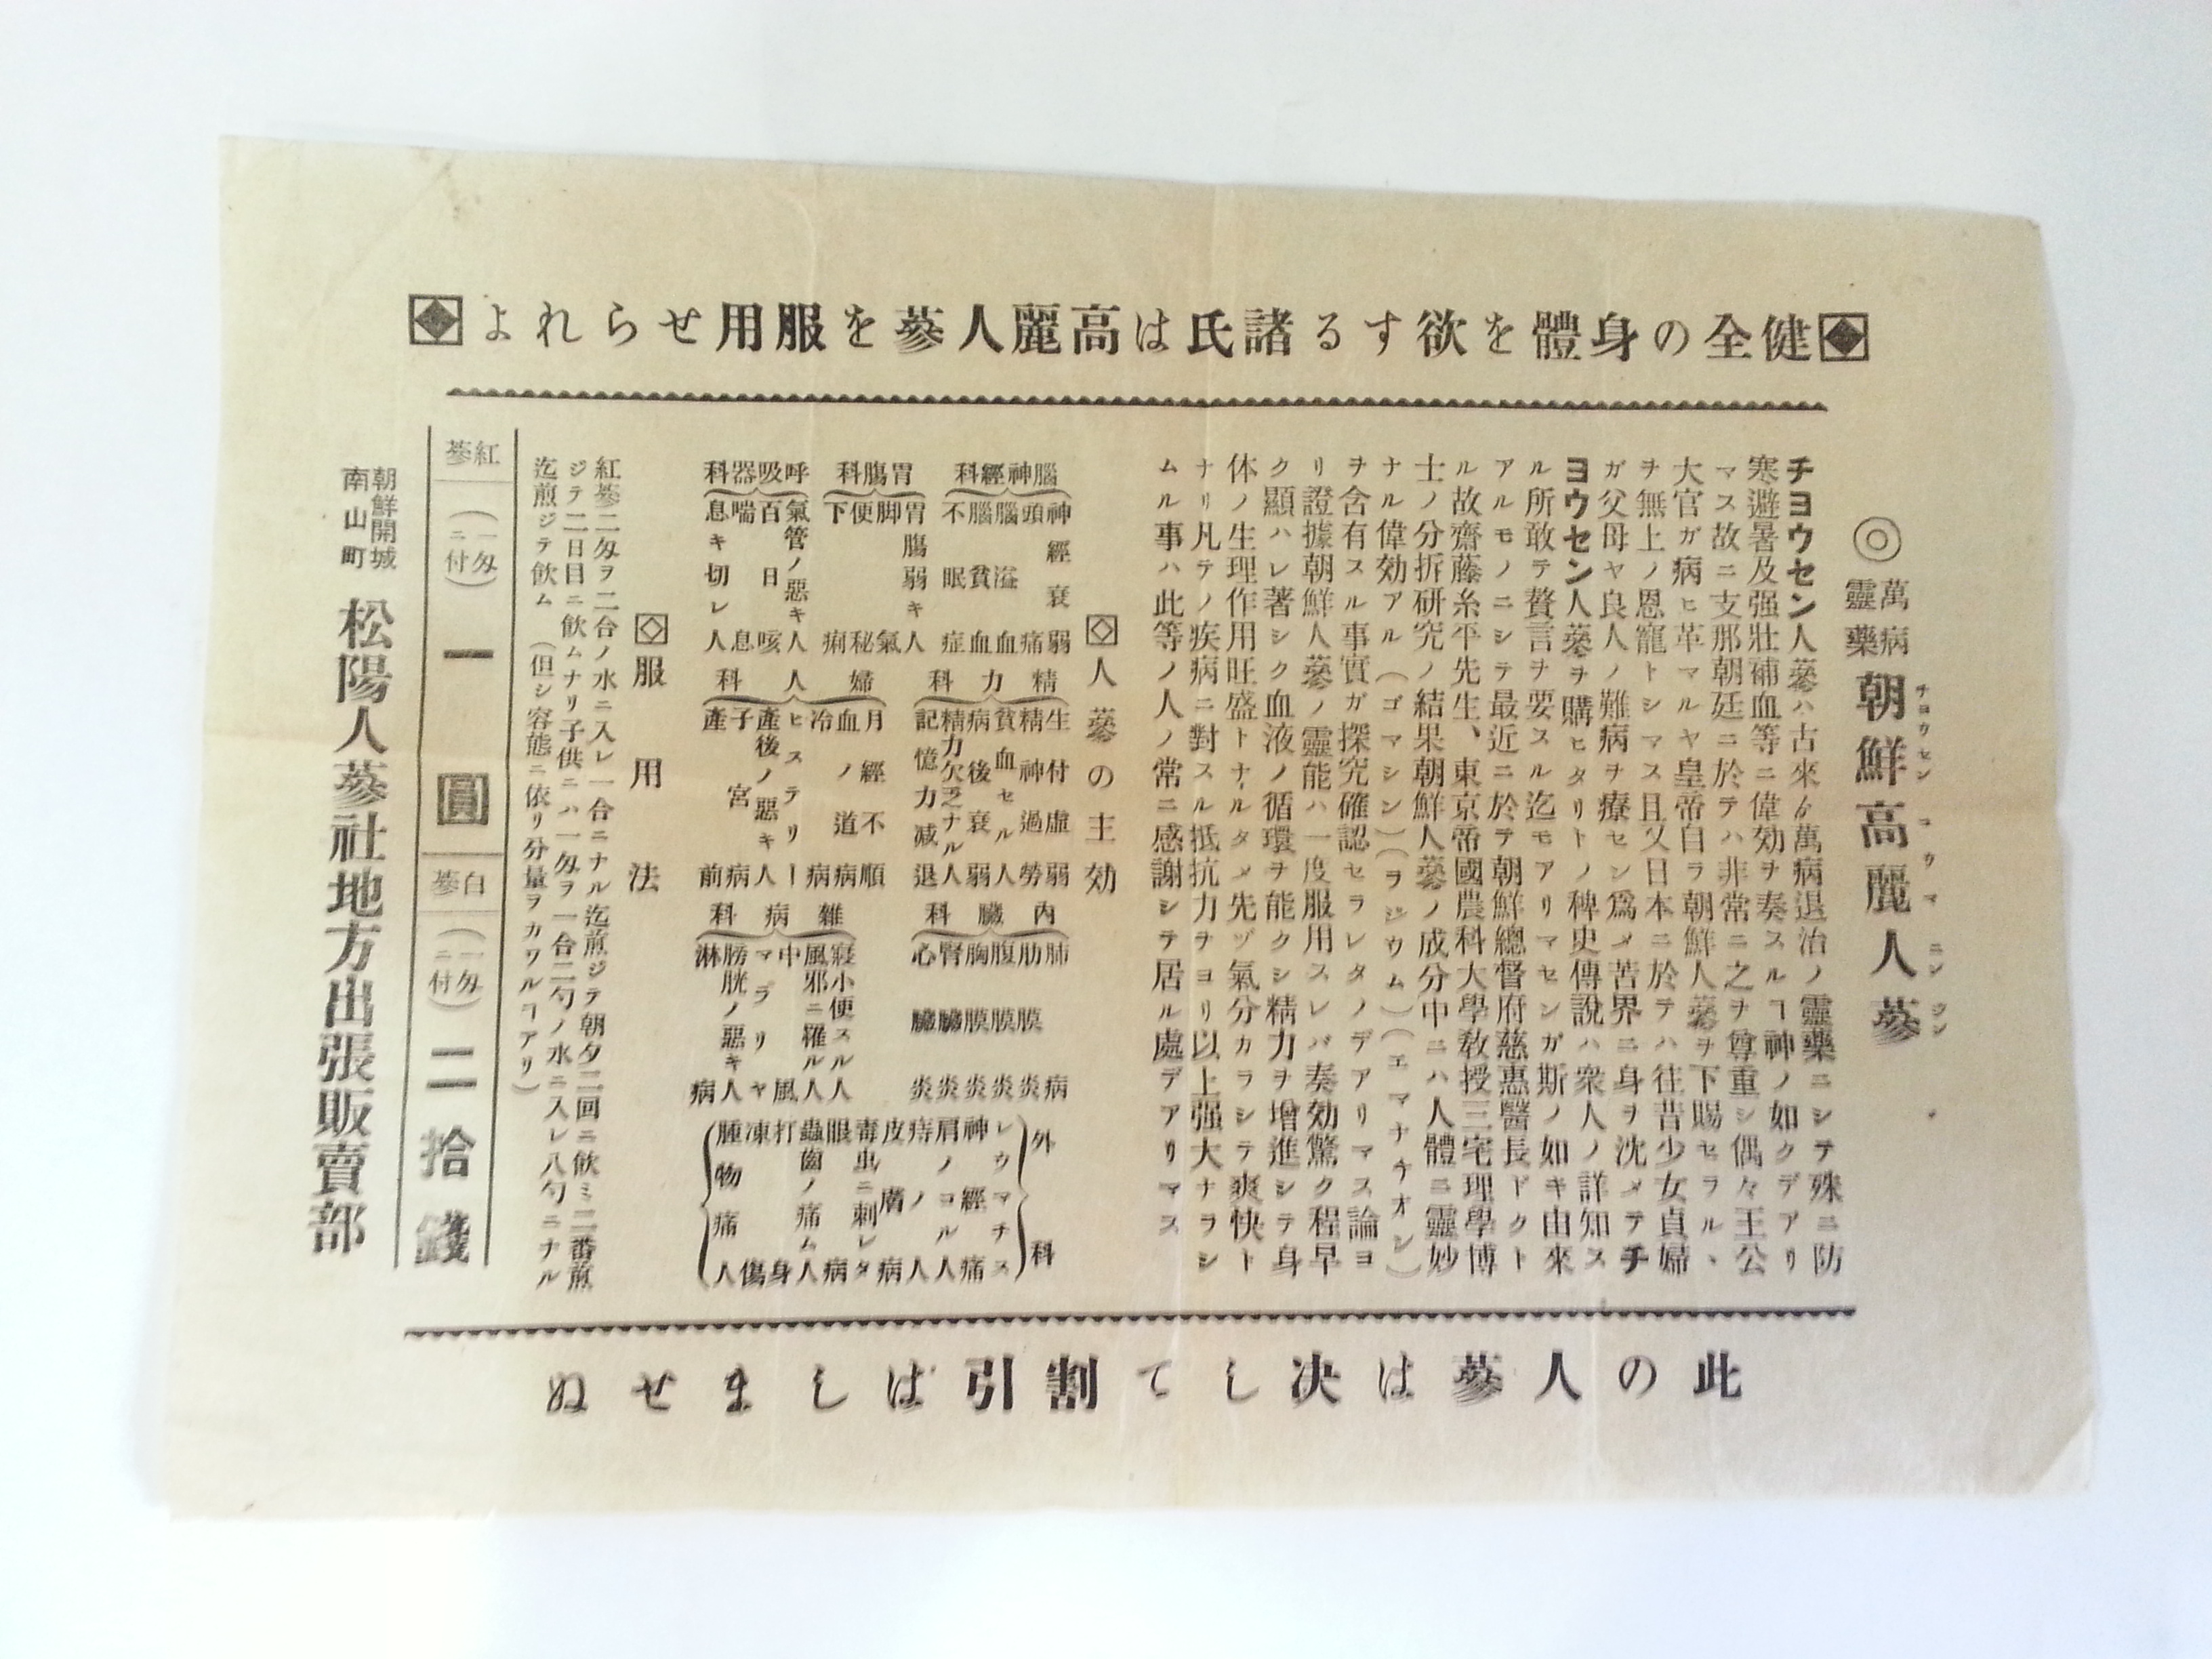 健全の身體を欲する諸氏は高麗人蔘を服用せられよ
◎萬病靈藥 朝鮮高麗人蔘
チヨウセン コウマ ニンジン
チヨウセン人蔘ハ古來ゟ萬病退治ノ靈藥ニシテ殊ニ防
寒避暑及强壯補血等ニ偉効ヲ奏スルヿ神ノ如クデアリ
マス故ニ支那朝廷ニ於テハ非常ニ之ヲ尊重シ偶々王公
大官ガ病ヒ革マルヤ皇帝自ラ朝鮮人蔘ヲ下賜セラル、
ヲ無上ノ恩寵トシマス且又日本ニ於テハ往昔少女貞婦
ガ父母ヤ良人ノ難病ヲ療セン爲メ苦界ニ身ヲ沈メテチ
ヨウセン人蔘ヲ購ヒタリトノ稗史傳說ハ衆人ノ詳知ス
ル所敢テ贅言ヲ要スル迄モアリマセンガ斯ノ如キ由來
アルモノニシテ最近ニ於テ朝鮮總督府慈惠醫長ドクト
ル故齋藤糸平先生、東京帝國農科大學敎授三宅理學博
士ノ分拆硏究ノ結果朝鮮人蔘ノ成分中ニハ人體ニ靈妙
ナル偉効アル(ゴマシン)(ヲジウム)(エマナチオン)
ヲ含有スル事實ガ探究確認セラレタノデアリマス論ヨ
リ證據朝鮮人蔘ノ靈能ハ一度服用スレバ奏効驚ク程早
ク顯ハレ著シク血液ノ循環ヲ能クシ精力ヲ增進シテ身
体ノ生理作用旺盛トナルタメ先ヅ氣分カラシテ爽快ト
ナリ凡テノ疾病ニ對スル抵抗力ヲヨリ以上强大ナラシ
ムル事ハ此等ノ人ノ常ニ感謝シテ居ル處デアリマス
人蔘の主効
腦神經科
神經衰弱
頭痛
腦溢血
腦貧血
不眠症
胃膓科
胃膓弱キ人
脚氣
便秘
下痢
呼吸器科
氣管ノ惡キ人
百日咳
喘息
息キ切レ人
精力科
生付虛弱
精神過勞
貧血セル人
病後衰弱
精力欠乏ナル人
記憶力減退
婦人科
月經不順
血ノ道病
冷病
ヒステリー
產後ノ惡キ人
子宮病
產前
內臟科
肺病
肋膜炎
腹膜炎
胸膜炎
腎臟炎
心臟炎
雜病科
寢小便スル人
風邪ニ罹ル人
中風
マラリヤ
膀胱ノ惡キ人
淋病
外科
レウマチス
神經痛
肩ノコル人
痔ノ人
皮膚病
毒虫ニ刺レタ
眼病
蟲齒ノ痛ム人
打身
凍傷
腫物痛人
服用法
紅蔘二匁ヲ二合ノ水ニ入レ一合ニナル迄煎ジテ朝夕二回ニ飮ミ二番煎
ジテ二日目ニ飮ムナリ子供ニハ一匁ヲ一合二勺ノ水ニ入レ八勺ニナル
迄煎ジテ飮ム(但シ容態ニ依リ分量ヲカワルヿアリ)
紅蔘(一匁ニ付)一圓
白蔘(一匁ニ付)二拾錢
朝鮮開城南山町 松陽人蔘社地方出張販賣部
此の人蔘は决して割引ばしませぬ